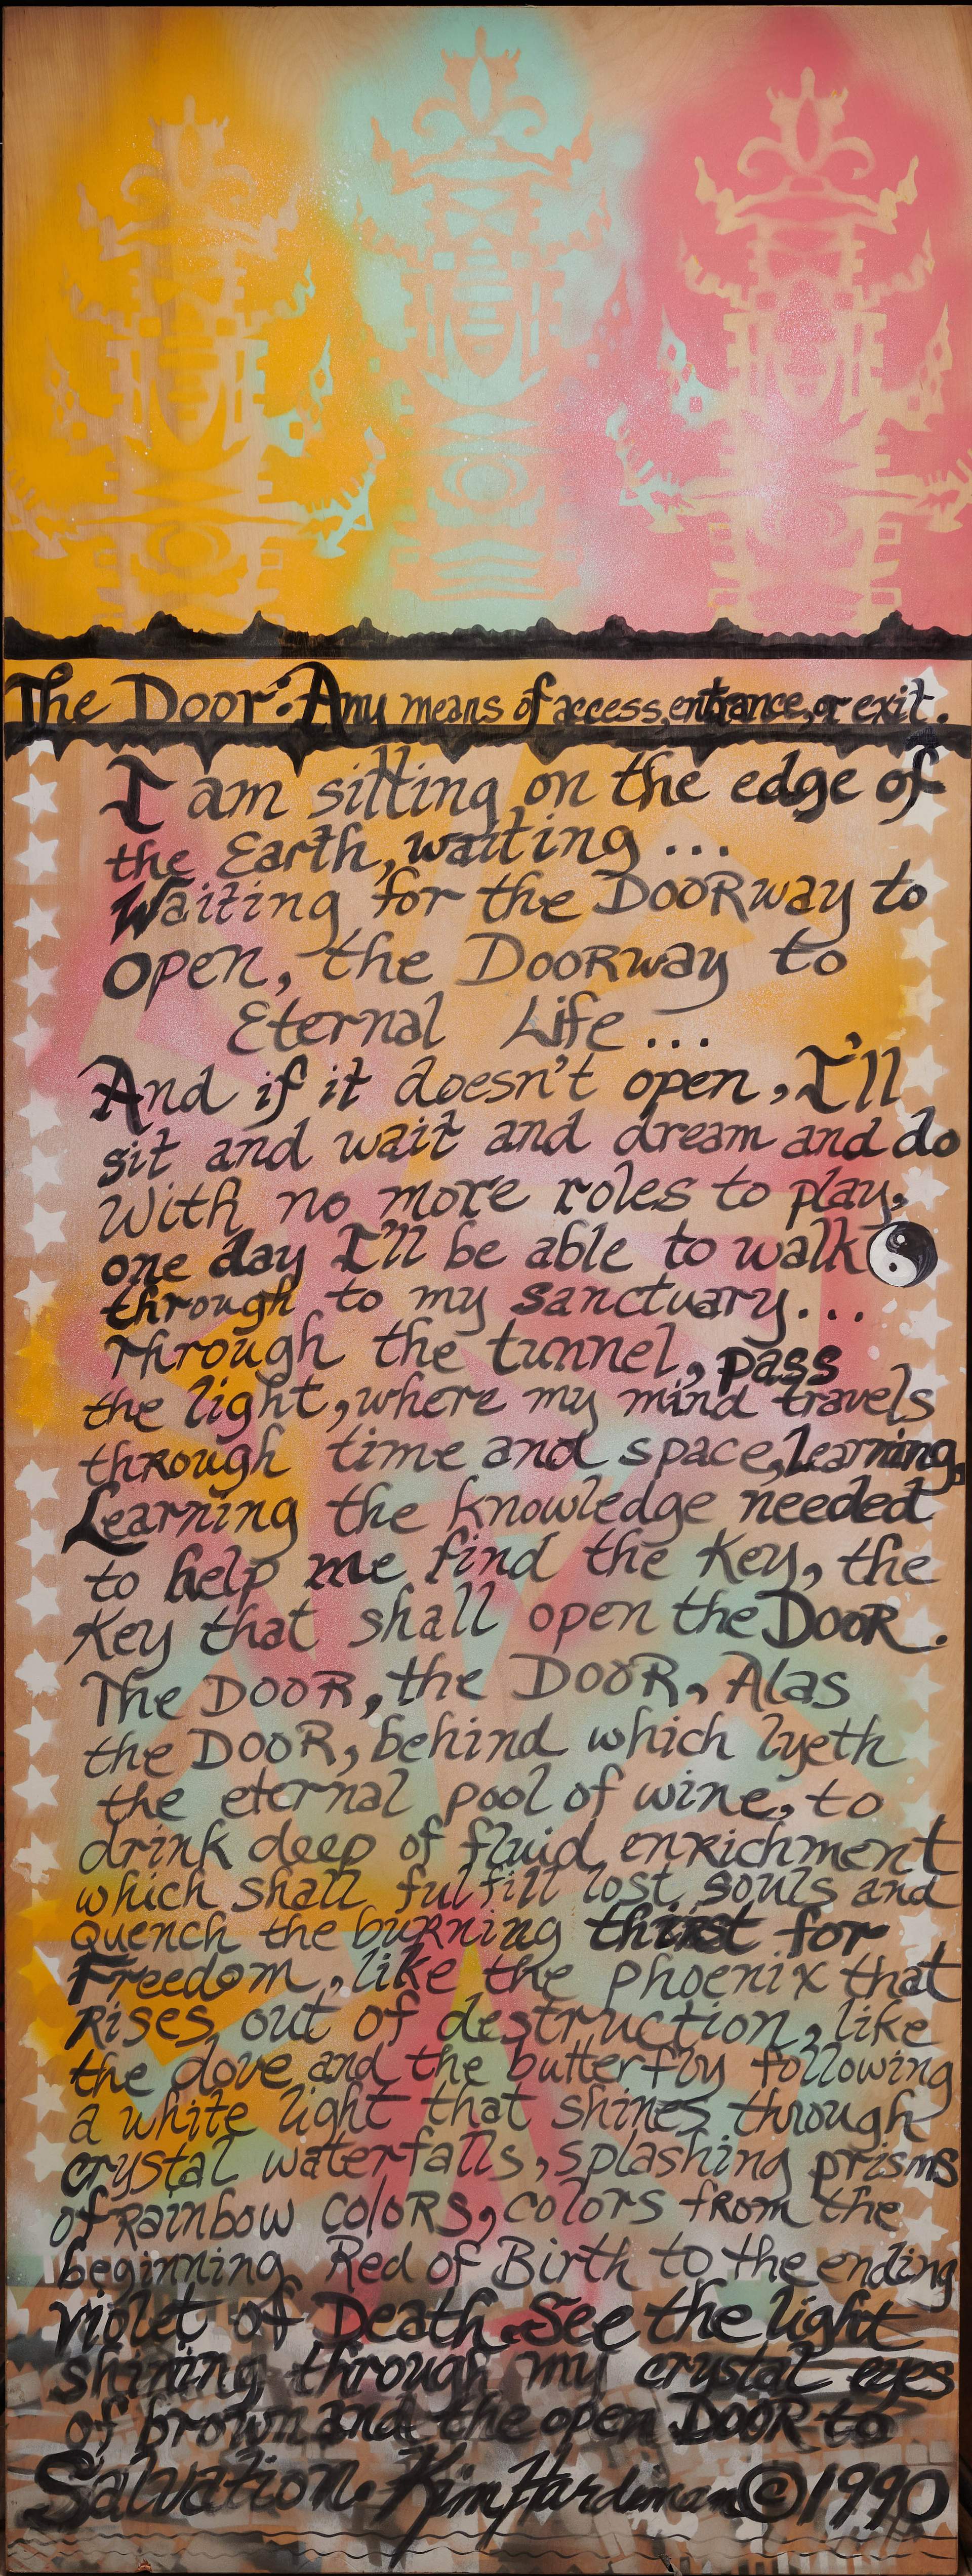 The Door: Any means of access, entrance, or exit.
I am sitting on the edge of
the Earth, waiting ...
Waiting for the DOORway to
open, the DOORway to
Eternal Life ...
And if it doesn't open, I'll
sit and wait and dream and do
With no more roles to play,
one day I'll be able to walk
through to my sanctuary...
Through the tunnel, pass
the light, where my mind travels
through time and space, learning,
Learning the knowledge needed
to help me find the Key, the
Key that shall open the DOOR.
The DOOR, the DOOR, Alas
the DOOR, behind which lyeth
the eternal pool of wine, to
drink deep of fluid enrichment
which shall fulfill lost souls and
Quench the burning thirst for
Freedom, like the phoenix that
Rises out of destruction, like
the dove and the butterfly following
a white light that shines through
crystal waterfalls, splashing prisms
of Rainbow colors, colors from the
beginning Red of Birth to the ending
violet of Death. See the light
shining through my crystal eyes
of brown and the open DOOR to
Salvation. Kim Hardiman © 1990